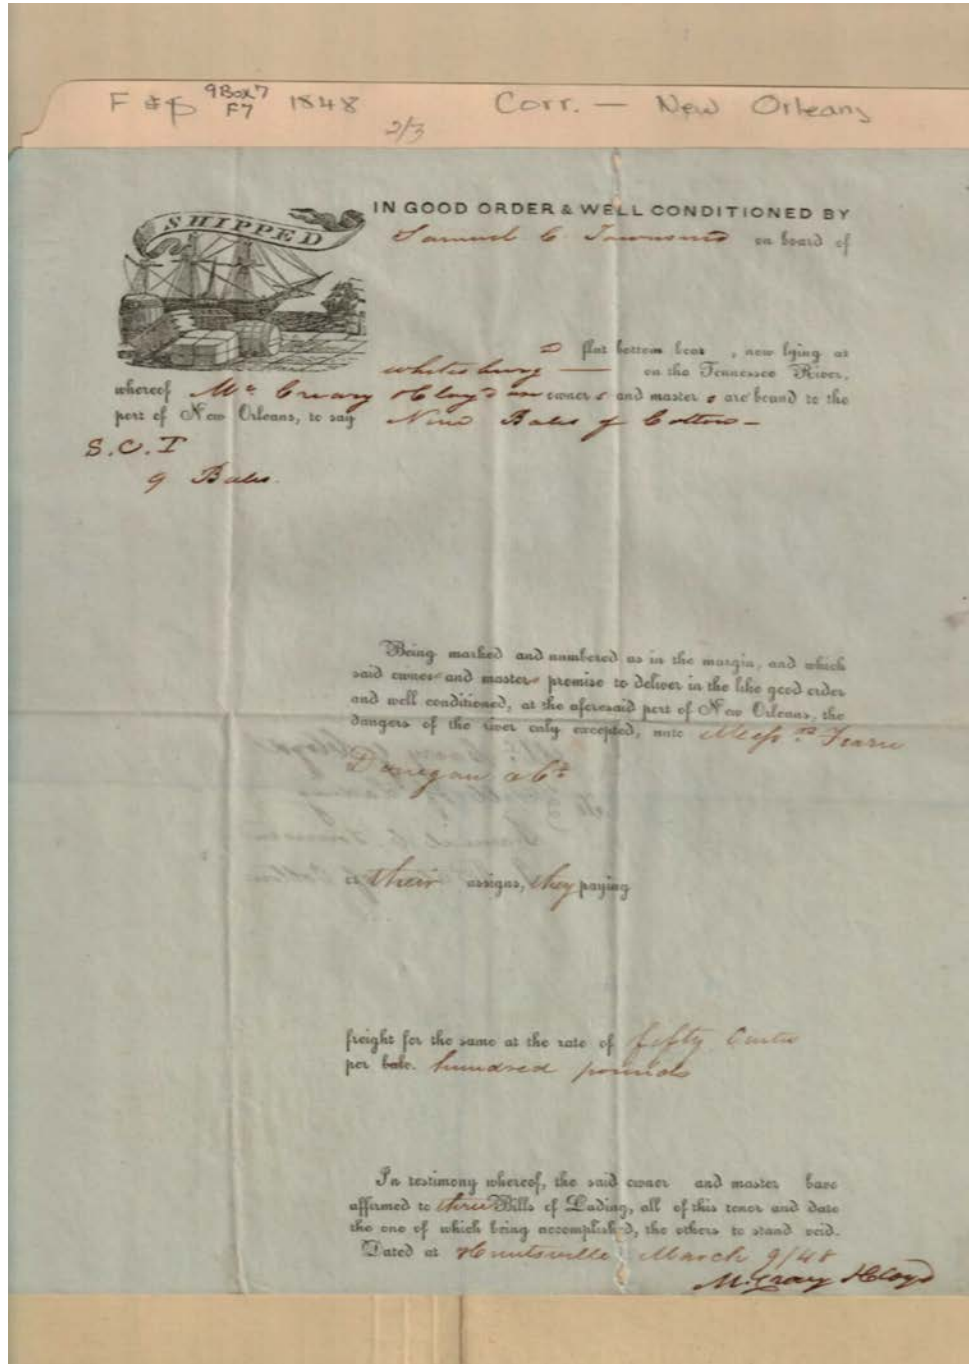 F #$ 9Box7 1848 Corr. — New Orleans
F7
2/3
SHIPPED
IN GOOD ORDER & WELL CONDITIONED BY
Samuel C Townsend on board of
a flat bottom boat , now lying at
whitesburg — on the Tennessee River,
whereof Mc Creary & Cloyd are owner s and master s are bound to the
port of New Orleans, to say Nine Bales of Cotton –
S.C.T
9 Bales.
Being marked and numbered as in the margin, and which
said owner and master promise to deliver in the like good order
and well conditioned, at the aforesaid port of New Orleans, the
dangers of the river only excepted, unto Messrs Fearn
Donegan & Co
or their assigns, they paying
freight for the same at the rate of fifty Cents
per bale. hundred pounds
In testimony whereof, the said owner and master have
affirmed to three Bills of Lading, all of this tenor and date
the one of which being accomplished, the others to stand void.
Dated at Huntsville March 9/48